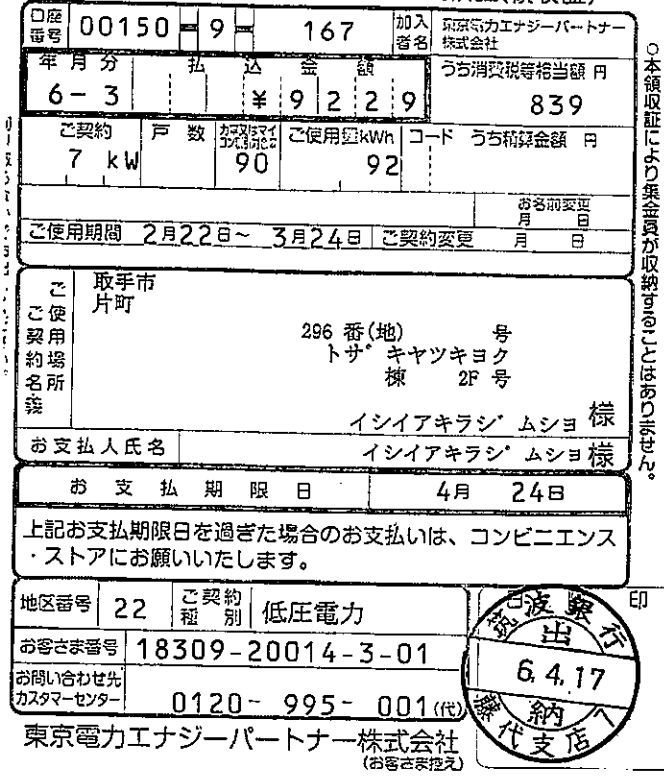 口座番号 00150 - 9 - 167 加入者名 東京電力エナジーパートナー株式会社
年月分 払込金額 うち消費税等相当額 円
6-3 ¥9229 839
ご契約 戸数 ご使用量kWh コード うち精算金額 円
7 kW 90 92
お名前変更 月 日
ご使用期間 2月22日~ 3月24日 ご契約変更 月 日
ご使用場所 ご契約名義
取手市
片町
296 番(地) 号
トサ゛キヤツキヨク
棟 2F 号
イシイアキラシ゛ムシヨ 様
お支払人氏名 イシイアキラシ゛ムシヨ 様
お支払期限日 4月 24日
上記お支払期限日を過ぎた場合のお支払いは、コンビニエンス
・ストアにお願いいたします。
地区番号 22 ご契約種別 低圧電力
お客さま番号 18309-20014-3-01
お問い合わせ先 カスタマーセンター 0120- 995- 001(代)
東京電力エナジーパートナー株式会社
(お客さま控え)
○本領収証により集金員が収納することはありません。
印
筑波銀行
出
6.4.17
納
藤代支店